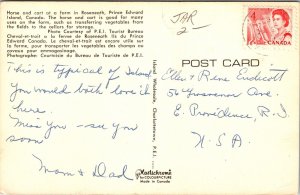 Horse and cart at a farm in Roseneath, Prince Edward
Island. The horse and cart is good for many
uses on the farm, such as transferring vegetables from
the fields to the cellars for storage.
Photo Courtesy of P.E.I. Tourist Bureau
Cheval et trait a la ferme de Roseneath Ile du Prince
Edward Canada. Le cheval et trait est encore utile sur
la ferme, pour transporter les vegetables des champs au
caveau pour emmagasinage.
Photographie: Courtoisie du Bureau de Touristes de P.E.I.
This is typical of Island
You would both love it
here
Miss you - see you
soon
Mom & Dad
Plastichrome
by COLOURPICTURE
Made in Canada
CANADA
POST CARD
Ellen & Rene Endicott
56 Grosvenor Ave
E. Providence, R.I.
U.S.A.